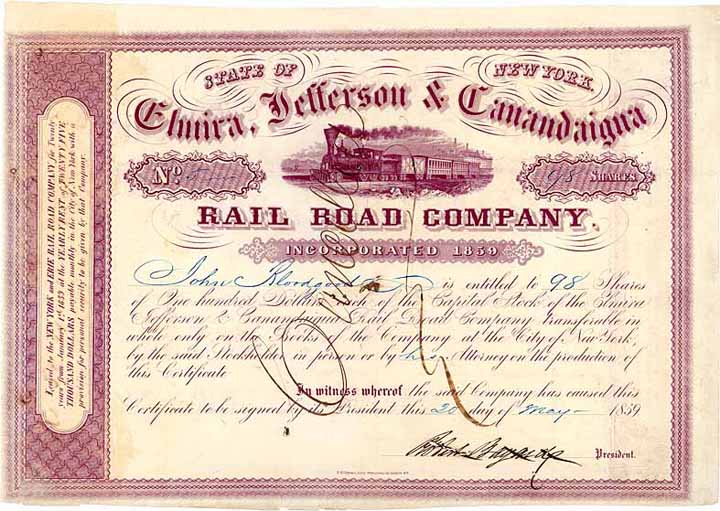 STATE OF NEW YORK.
Elmira, Jefferson & Canandaigua
No
98 SHARES
RAIL ROAD COMPANY.
INCORPORATED 1859
John Bloodgood is entitled to 98 Shares
of One hundred Dollars each of the Capital Stock of the Elmira
Jefferson & Canandaigua Rail Road Company transferable in
whole only on the Books of the Company at the City of New York,
by the said Stockholder in person or by his Attorney on the production
of this Certificate
In witness whereof the said Company has caused this
Certificate to be signed by its President this 20 day of May 1859
President.
Cancelled
Leased, to the NEW YORK and ERIE RAIL ROAD COMPANY for Twenty
years from January 1st 1859 at the YEARLY RENT of TWENTY FIVE
THOUSAND DOLLARS payable monthly in the City of New York with a
provision for personal security to be given by that Company.